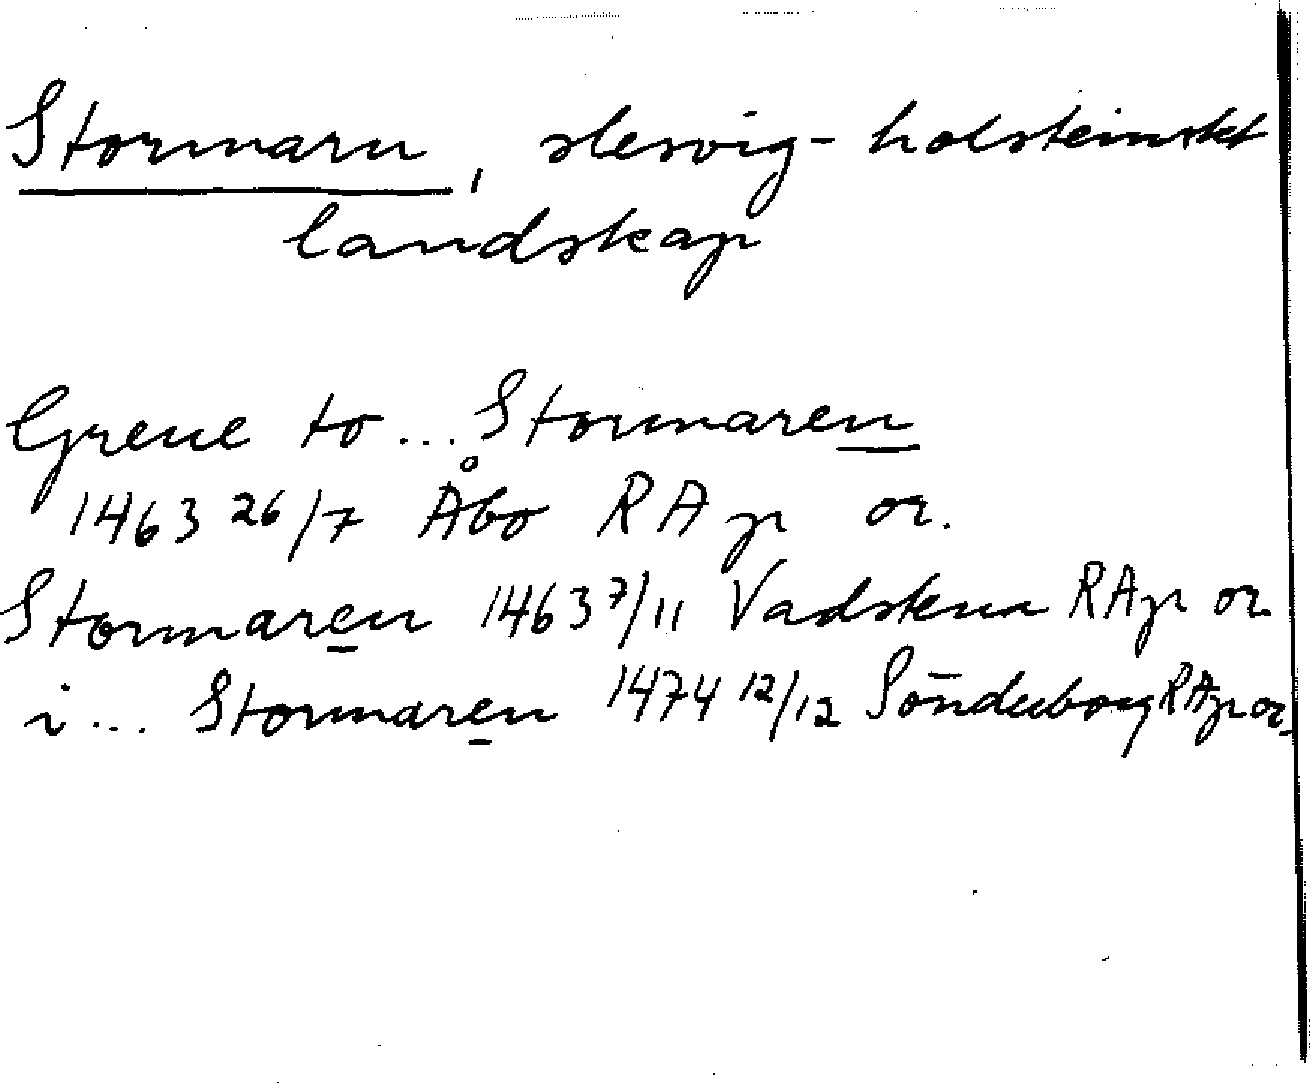 Stormarn, slesvig-holsteinskt
landskap
Greue to... Stormaren
1463 26/7 Åbo RAp or.
Stormaren 1463 7/11 Vadstena RAp or
i... Stormaren 1474 12/12 Sönderborg RAp or.